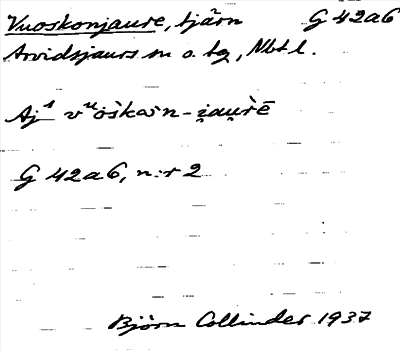 Vuoskonjaure, tjärn G 42a6
Arvidsjaurs sn o. tg, Nbtl.
Aj¹ vᵘöšка̊n-i̯au̯rē
G 42a6, n:r 2
Björn Collinder 1937